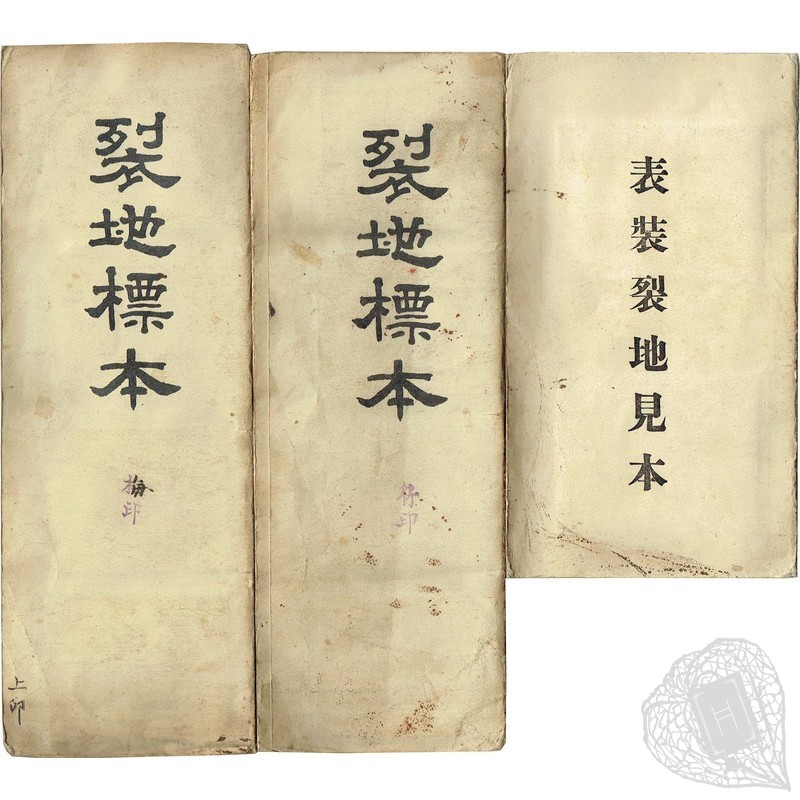 裂地標本
梅印
上印
裂地標本
印
表装裂地見本
H